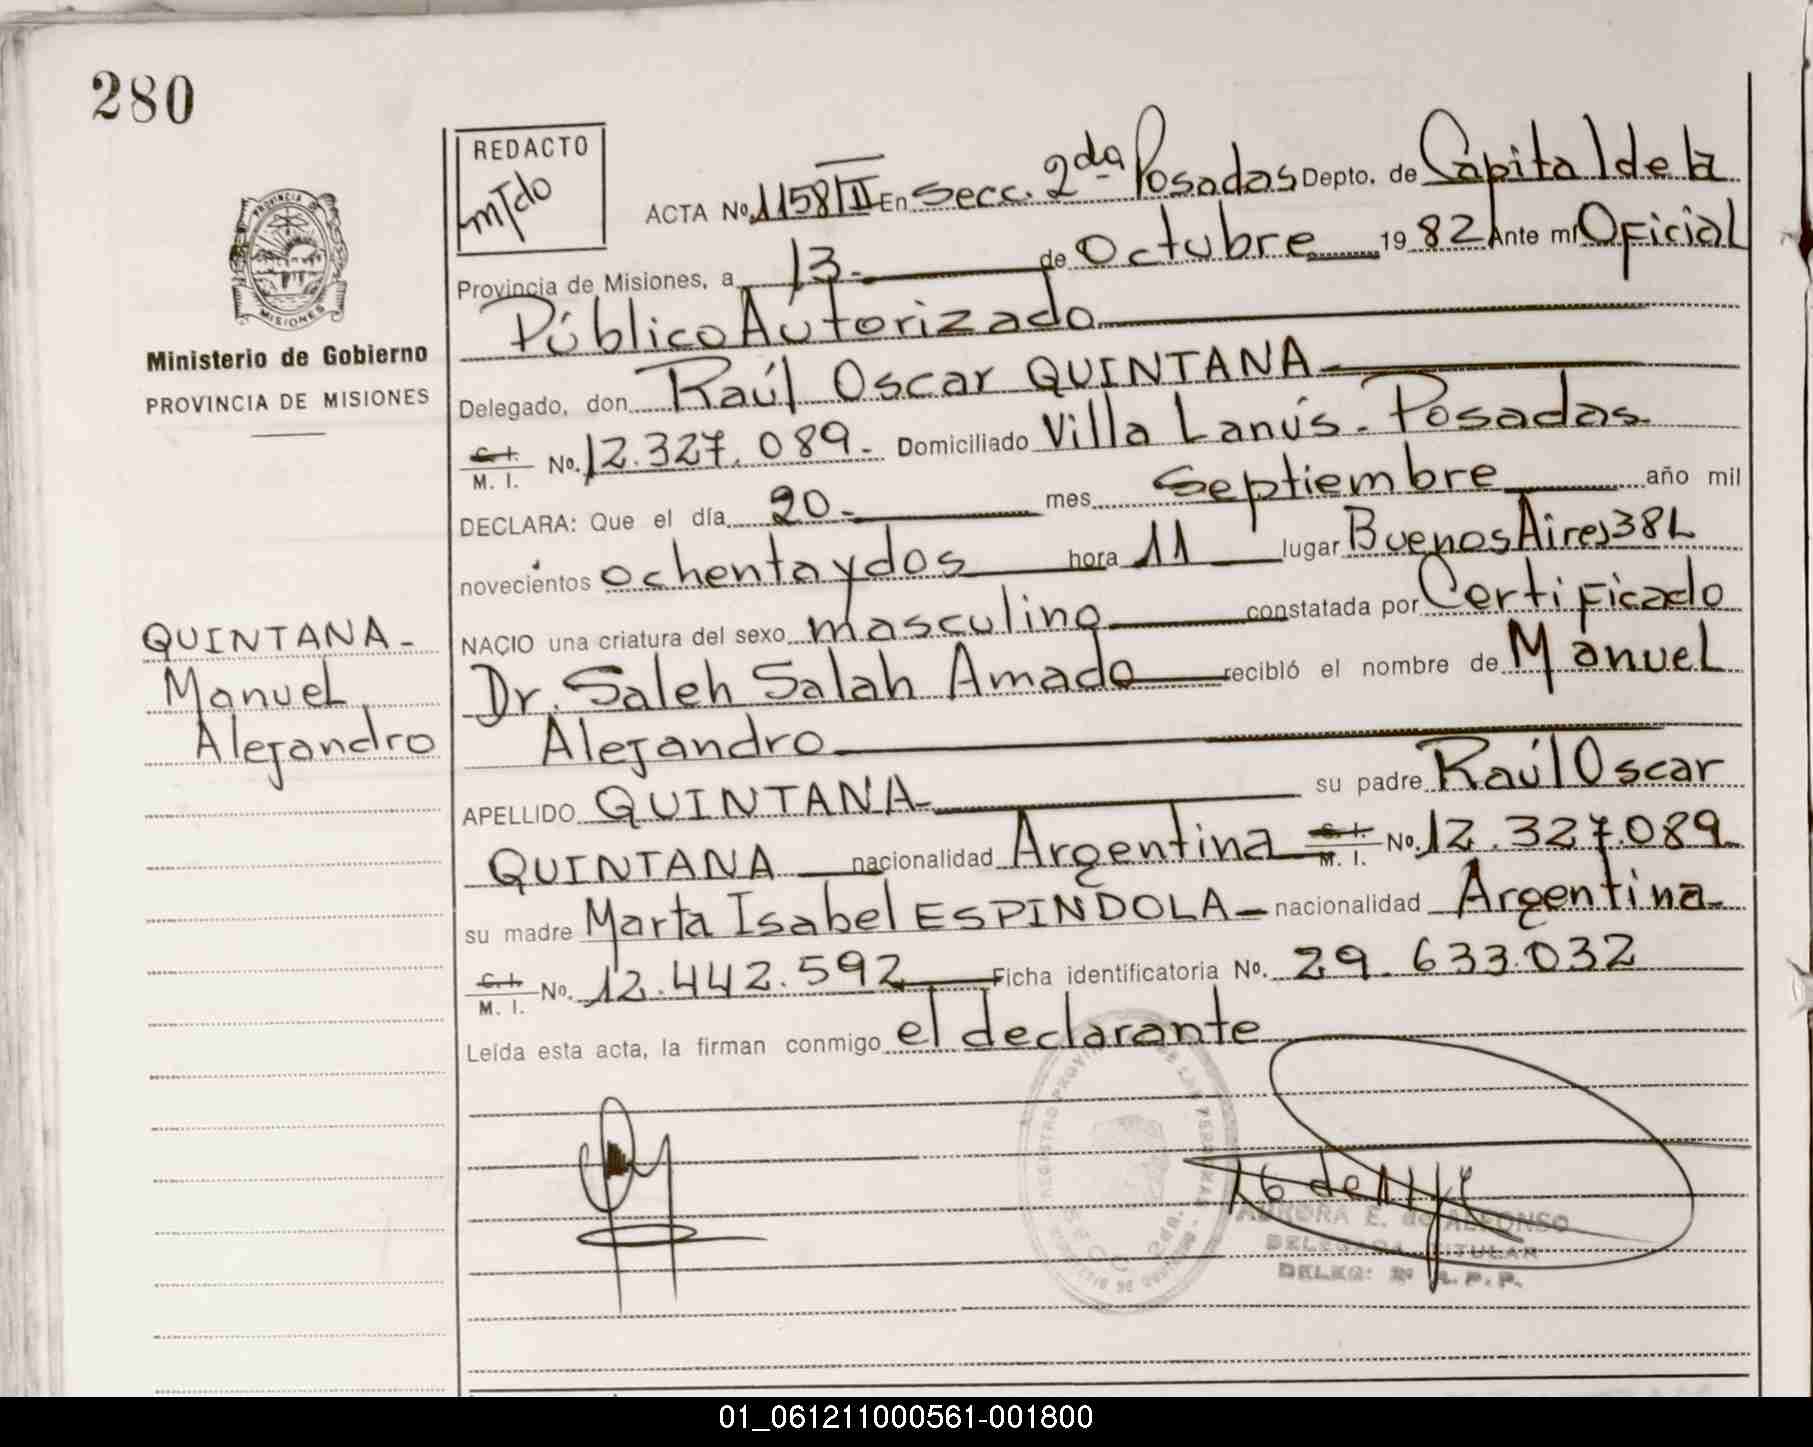 280
REDACTO
ACTA No. 1158/II En Secc. 2da Posadas Depto. de Capital de la
Provincia de Misiones, a 13 - de Octubre 19 82 Ante mi Oficial
Público Autorizado
Delegado, don Raúl Oscar QUINTANA
C. I. M. I. No. 12.327.089- Domiciliado Villa Lanús - Posadas
DECLARA: Que el día 20- mes Septiembre año mil
novecientos ochenta y dos hora 11 lugar Buenos Aires 382
NACIO una criatura del sexo masculino constatada por Certificado
Dr. Saleh Salah Amado recibló el nombre de Manuel
Alejandro
APELLIDO QUINTANA su padre Raúl Oscar
QUINTANA nacionalidad Argentina C. I. M. I. No. 12.327.089
su madre Marta Isabel ESPINDOLA - nacionalidad Argentina
C. I. M. I. No. 12.442.592 Ficha identificatoria No. 29.633.032
Leída esta acta, la firman conmigo el declarante
PROVINCIA DE MISIONES
Ministerio de Gobierno
PROVINCIA DE MISIONES
QUINTANA -
Manuel
Alejandro
AURORA E. de ALFONSO
DELEGADA TITULAR
01_061211000561-001800